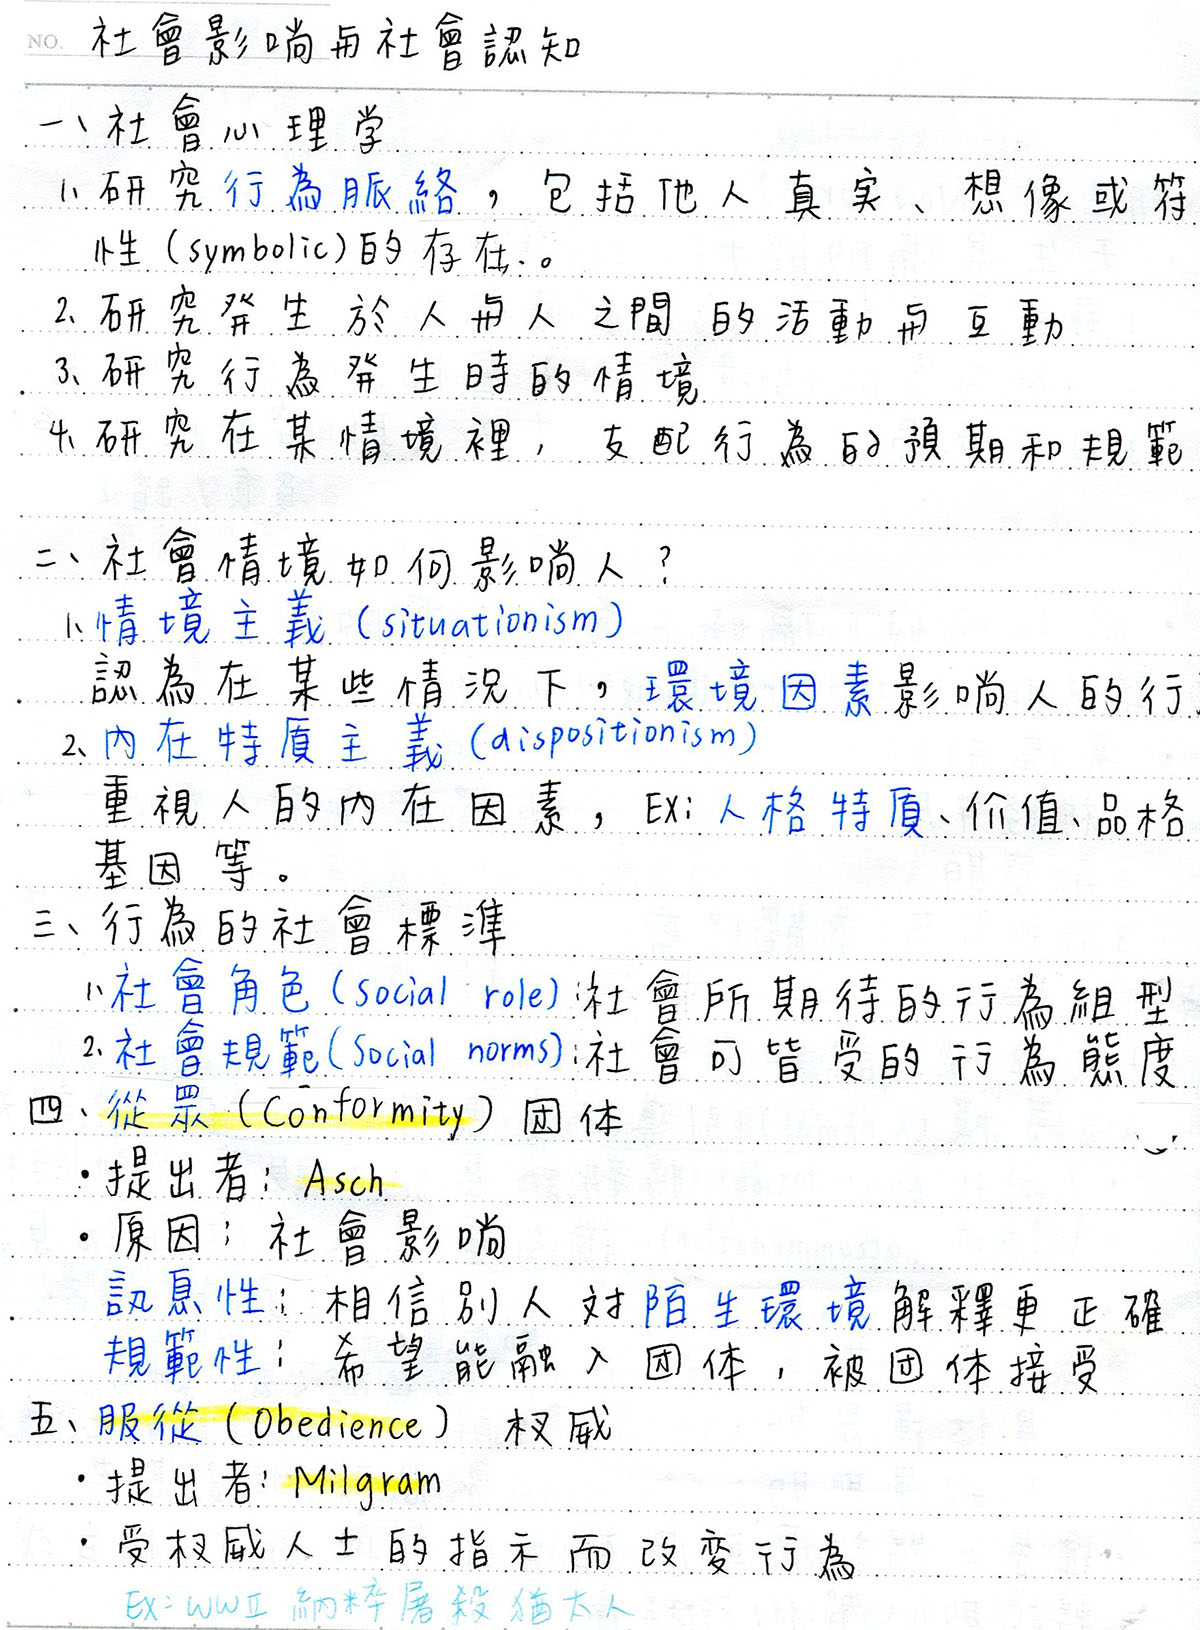 NO. 社會影响与社會認知
一、社會心理学
1、研究行為脈絡，包括他人真实、想像或符
性(symbolic)的存在。
2、研究発生於人与人之間的活動与互動
3、研究行為発生時的情境
4、研究在某情境裡，支配行為的預期和規範
二、社會情境如何影响人？
1、情境主義(situationism)
認為在某些情况下，環境因素影响人的行
2、內在特质主義(dispositionism)
重視人的內在因素，EX:人格特质、价值、品格
基因等。
三、行為的社會標準
1、社會角色(social role):社會所期待的行為組型
2、社會規範(Social norms):社會可皆受的行為態度
四、從眾(Conformity)团体
・提出者:Asch
・原因:社會影响
訊息性:相信別人对陌生環境解釋更正確
規範性:希望能融入团体，被团体接受
五、服從(Obedience) 权威
・提出者:Milgram
・受权威人士的指示而改変行為
EX:WWII 納粹屠殺猶太人